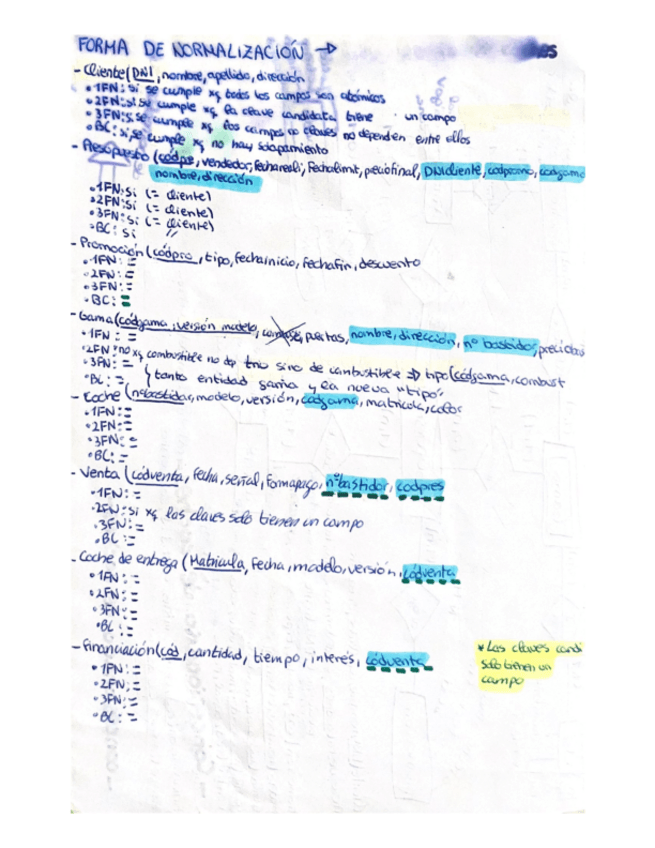 FORMA DE NORMALIZACIÓN →
- Cliente (DNI, nombre, apellido, dirección
• 1FN: si se cumple xq todos los campos son atómicos
• 2FN: si se cumple xq la clave candidata tiene un campo
• 3FN: si se cumple xq los campos no claves no dependen entre ellos
• BC: si se cumple xq no hay solapamiento
- Presupuesto (códpre, vendedor, fechareali, fechalimit, preciofinal, DNIcliente, codpromo, codgama
nombre, dirección
• 1FN: Si (= cliente)
• 2FN: Si (= cliente)
• 3FN: Si (= cliente)
• BC: Si "
- Promoción (códpro, tipo, fechainicio, fechafin, descuento
• 1FN: =
• 2FN: =
• 3FN: =
• BC: =
- Gama (códgama, versión, modelo, puertas, nombre, dirección, nº bastidor,
• 1FN: =
• 2FN: no xq combustible no dp tno sino de combustible => tipo (códgama, combust
• 3FN: = } tanto entidad gama y la nueva "tipo"
• BC: =
- Coche (nºbastidor, modelo, versión, codgama, matricula, color
• 1FN: =
• 2FN: =
• 3FN: =
• BC: =
- Venta (códventa, fecha, señal, formapago, nºbastidor, codpres
• 1FN: =
• 2FN: si xq las claves solo tienen un campo
• 3FN: =
• BC: =
- Coche de entrega (Matricula, fecha, modelo, versión, códventa
• 1FN: =
• 2FN: =
• 3FN: =
• BC: =
- Financiación (cód, cantidad, tiempo, interés, códventa
• 1FN: =
• 2FN: =
• 3FN: =
• BC: =
* Las claves candi
solo tienen un
campo